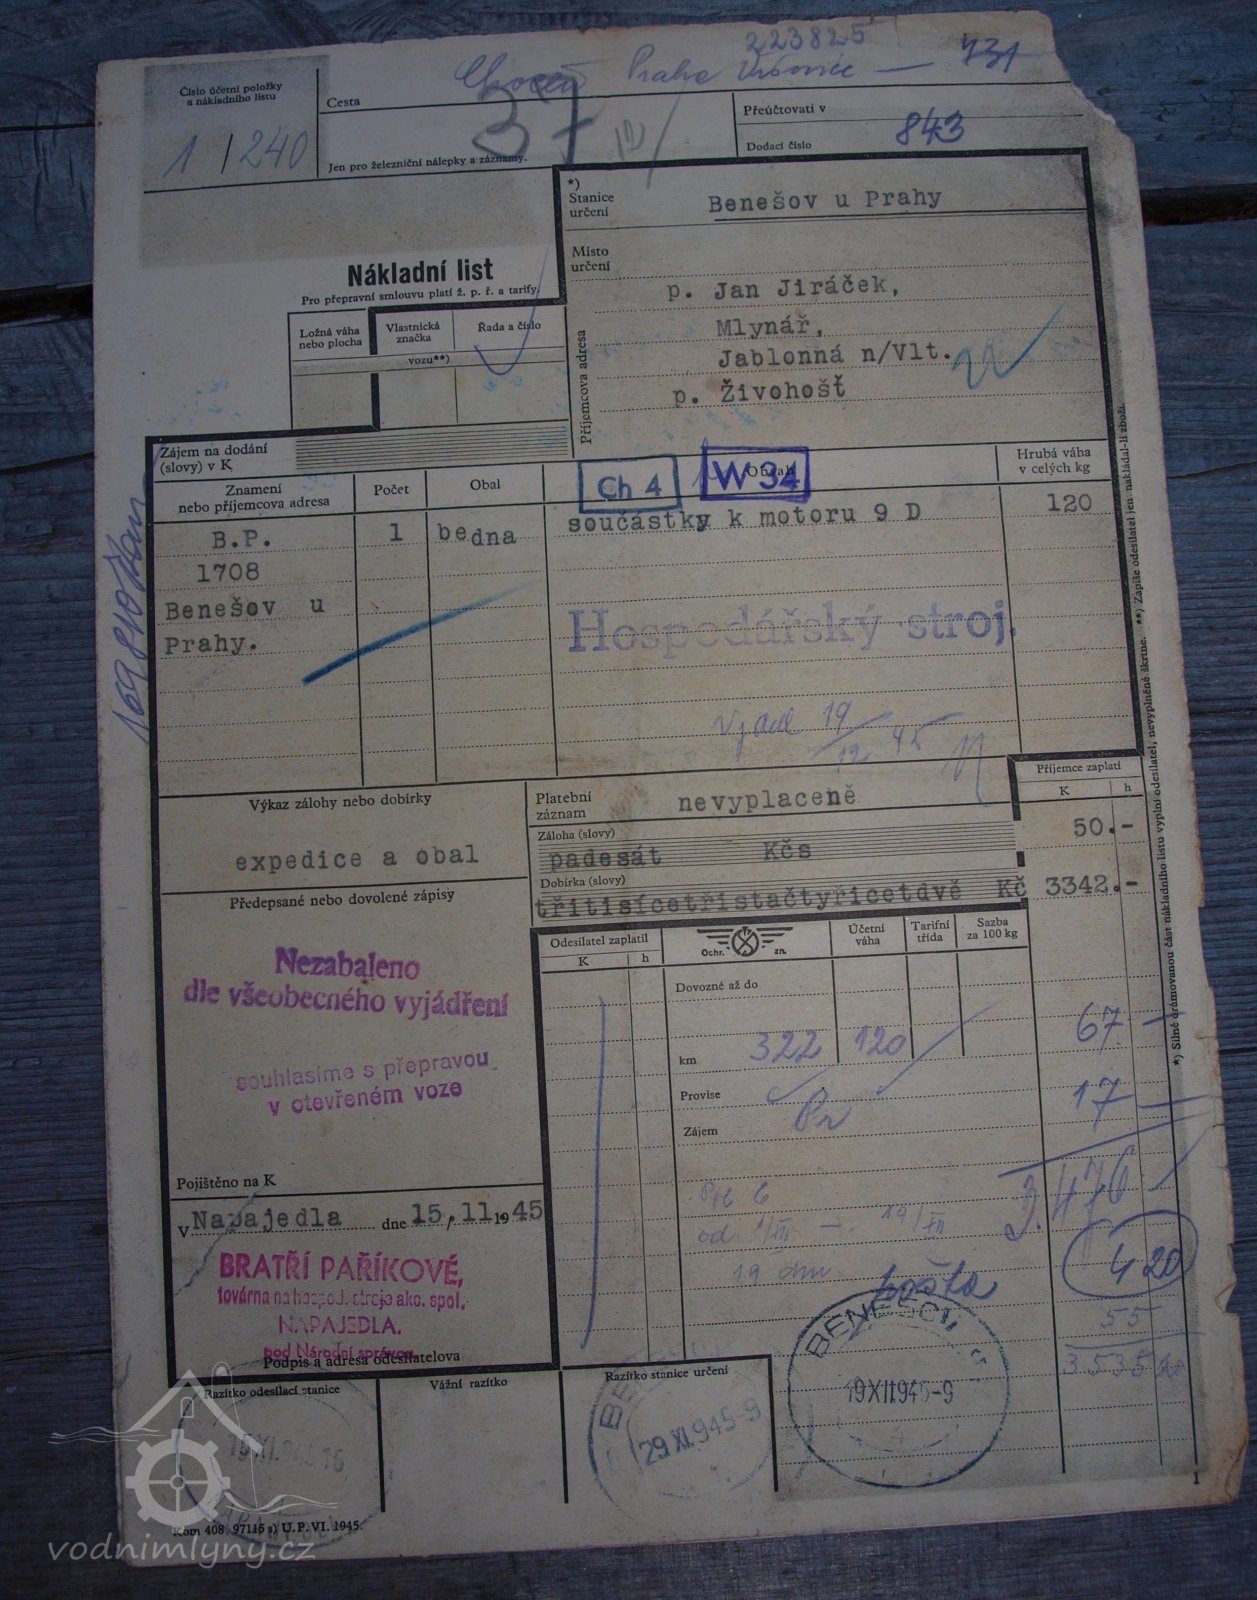 223825
Choceň Praha Vršovice — 431
Číslo účetní položky
a nákladního listu
1 / 240
Cesta
37
Jen pro železniční nálepky a záznamy.
Přeúčtovati v
Dodací číslo
843
*)
Stanice
určení
Benešov u Prahy
Místo
určení
Příjemcova adresa
p. Jan Jiráček,
Mlynář,
Jablonná n/Vlt.
p. Živohošť
Nákladní list
Pro přepravní smlouvu platí ž. p. ř. a tarify.
Ložná váha
nebo plocha
Vlastnická
značka
Řada a číslo
vozu**)
Zájem na dodání
(slovy) v K
Znamení
nebo příjemcova adresa
Počet
Obal
Obsah
Hrubá váha
v celých kg
Ch 4
W 34
B.P.
1708
Benešov u
Prahy.
1
bedna
součástky k motoru 9 D
120
Hospodářský stroj.
19/12 45
*) Silně orámovanou část nákladního listu vyplní odesilatel, nevyplněné škrtne. **) Zapíše odesilatel jen nakládal-li zboží.
Výkaz zálohy nebo dobírky
expedice a obal
Platební
záznam
nevyplaceně
Příjemce zaplatí
K h
Záloha (slovy)
padesát Kčs
50.-
Dobírka (slovy)
třitisícetřistačtyřicetdvě Kč
3342.-
Předepsané nebo dovolené zápisy
Nezabaleno
dle všeobecného vyjádření
souhlasíme s přepravou
v otevřeném voze
Odesilatel zaplatil
K h
Ochr. zn.
Účetní
váha
Tarifní
třída
Sazba
za 100 kg
Dovozné až do
km
322
120
67.—
Provise
17—
Zájem
3.476
od 1/XII — 19/XII
19 dnu
4 20
pošta
55
3535 20
Pojištěno na K
v Napajedla dne 15./11.1945
BRATŘÍ PAŘÍKOVÉ,
továrna na hospod. stroje akc. spol.
NAPAJEDLA.
pod Národní správou
Podpis a adresa odesilatelova
Razítko odesílací stanice
Vážní razítko
Razítko stanice určení
29 XI.945-9
BENEŠOV
19 XII 945-9
4
1
Kom 408. 97115 s) U. P. VI. 1945.
vodnimlyny.cz